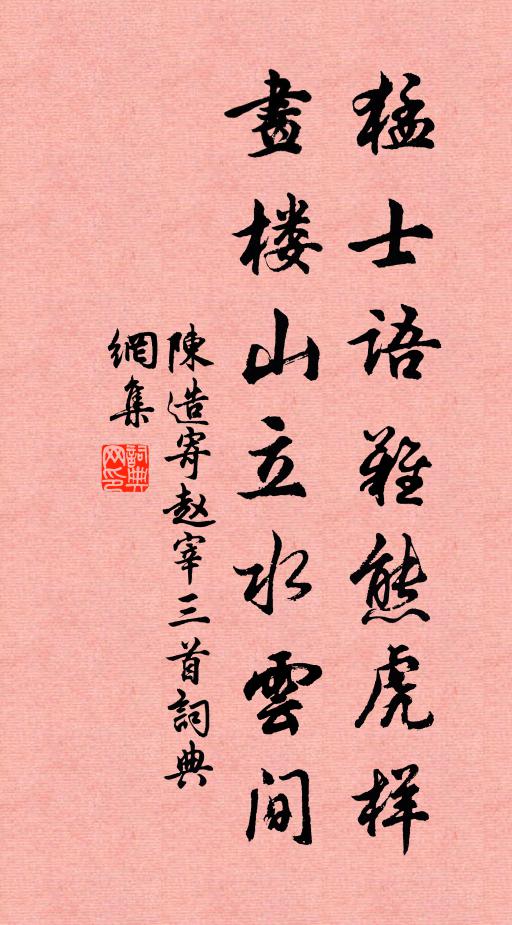 猛士语难熊虎样
畫楼山立水雲间
陳造寄赵宰三首詞典
網集
詞典网印